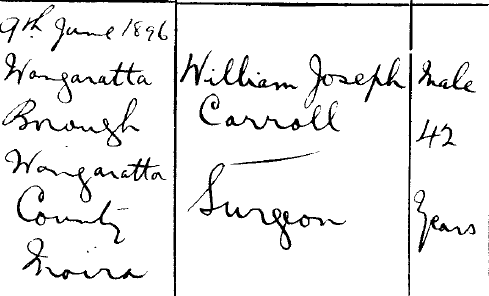 9th June 1896
Wangaratta
Borough
Wangaratta
County
Moira
William Joseph
Carroll
Surgeon
Male
42
Years